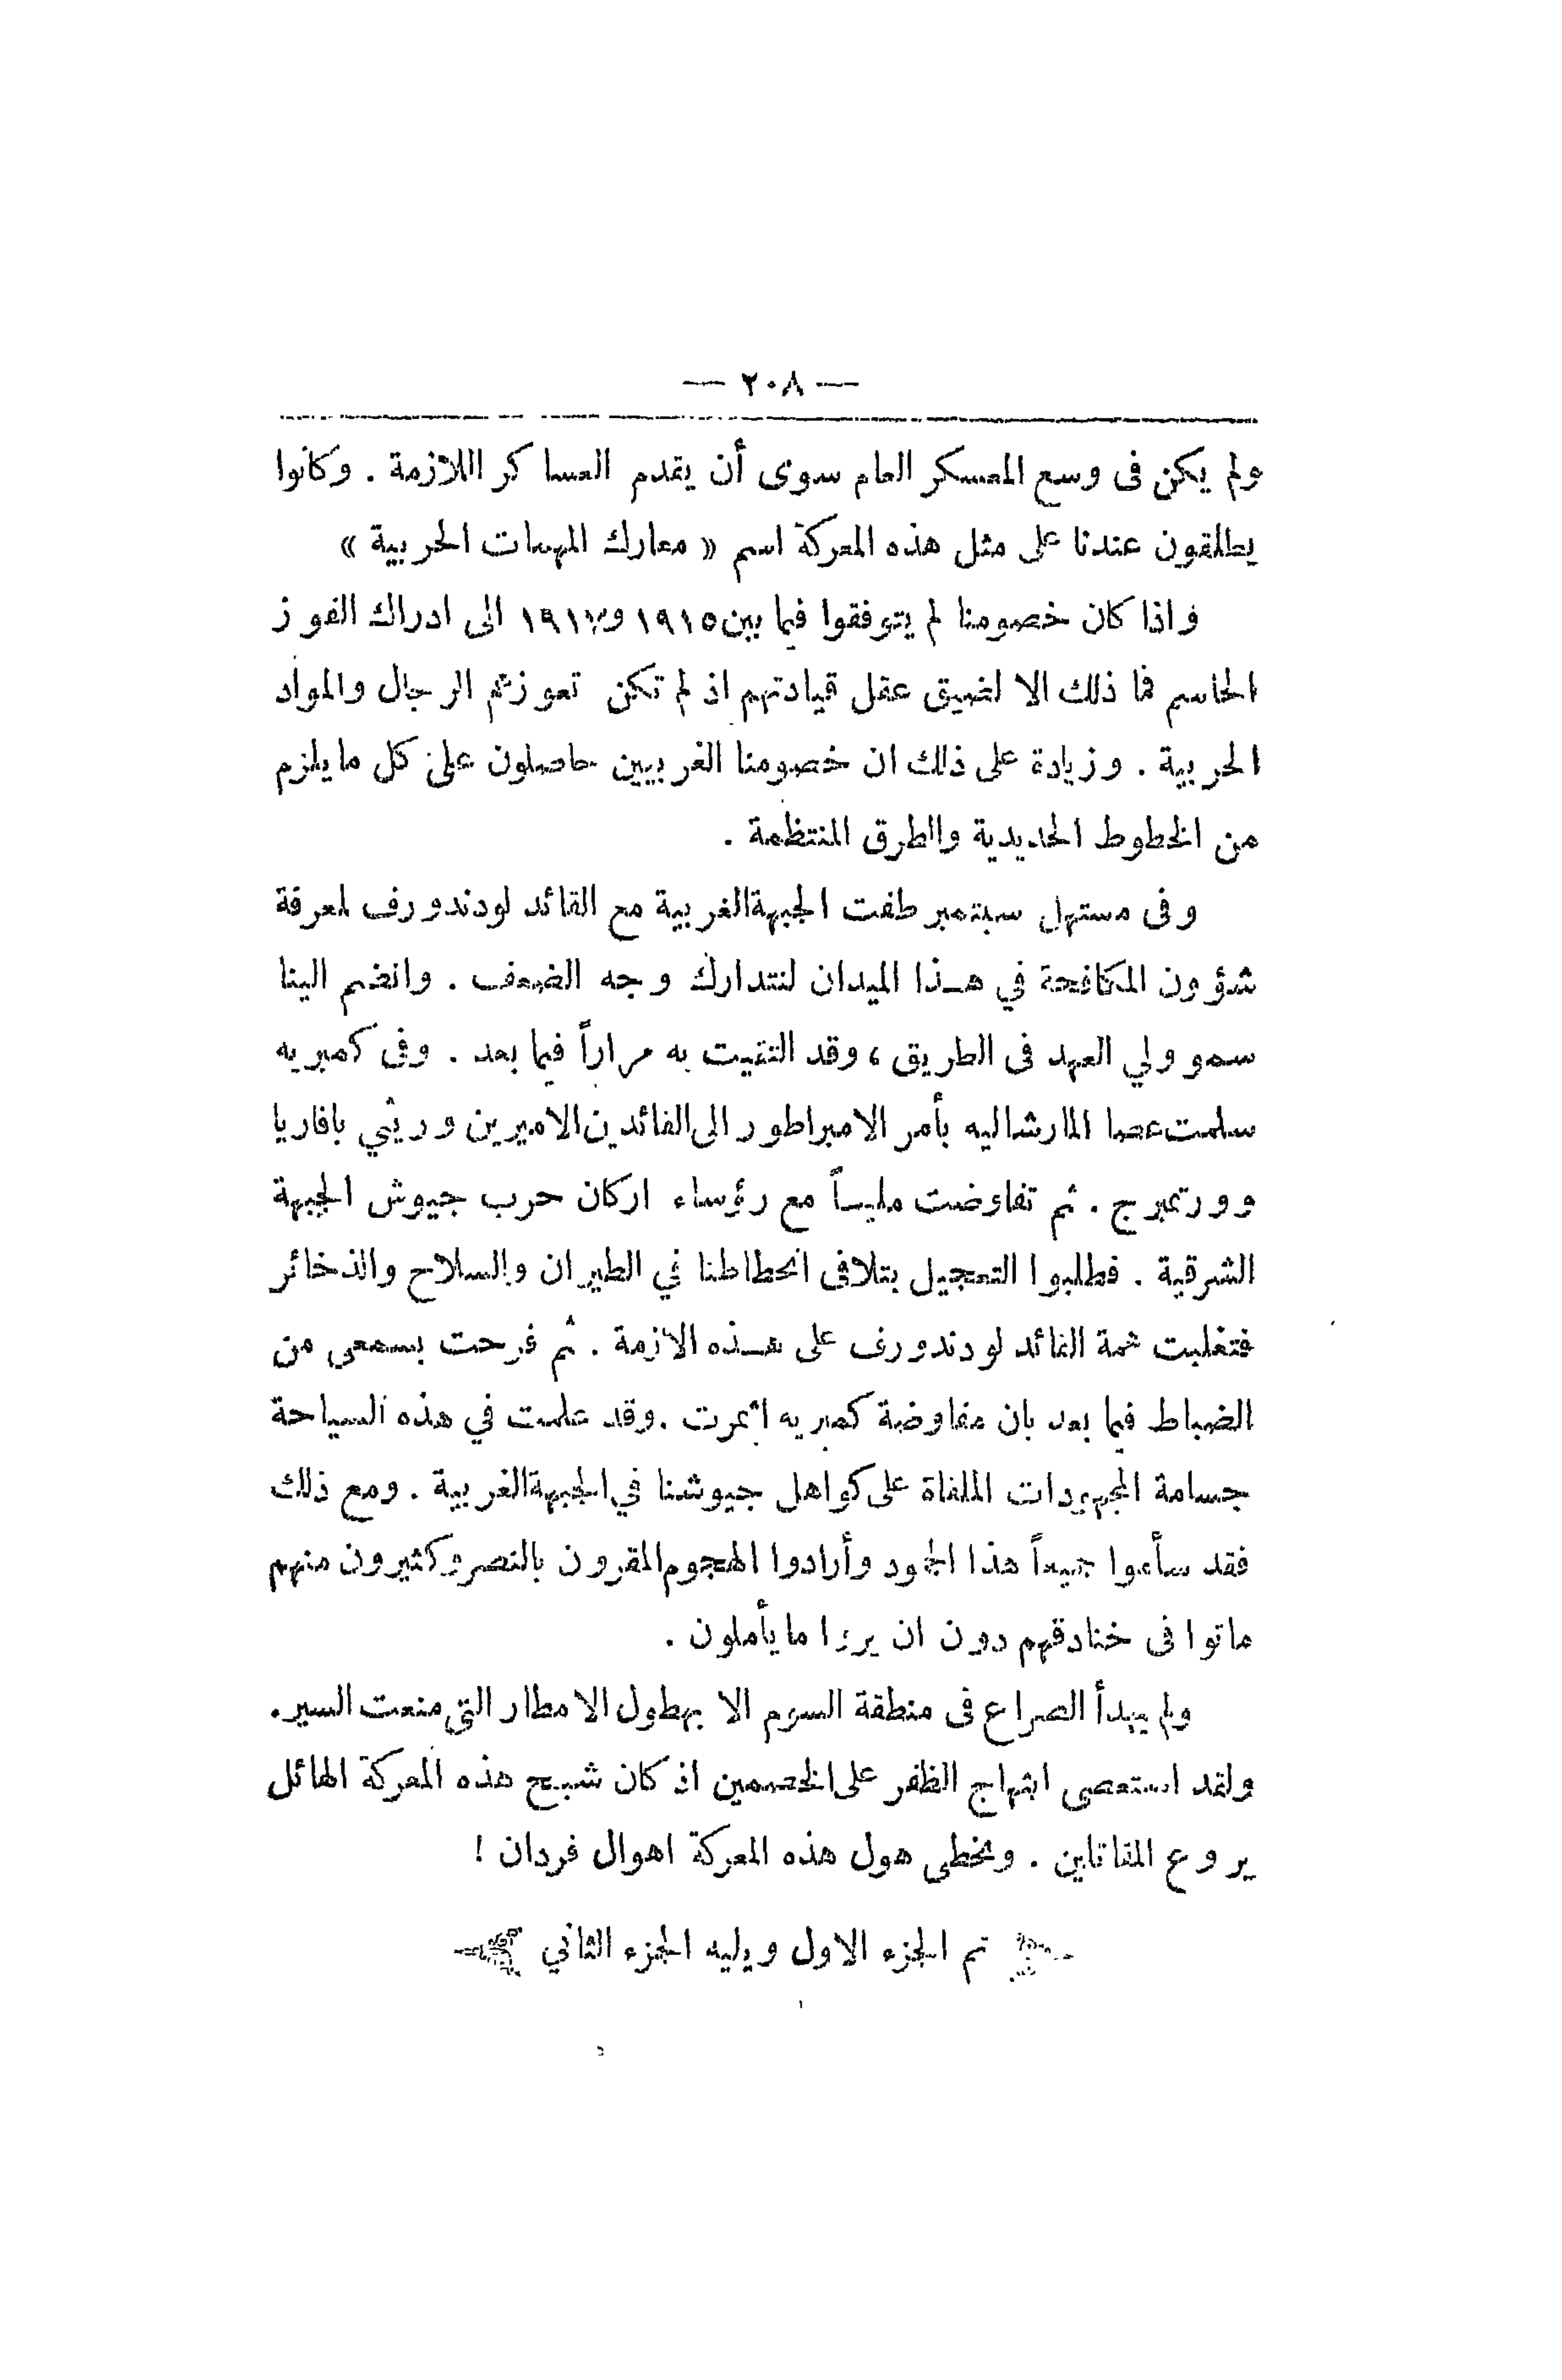 — ٢٠٨ —
ولم يكن فى وسع المعسكر العام سوى أن يقدم العساكر اللازمة . وكانوا
يطلقون عندنا على مثل هذه المعركة اسم « معارك المهمات الحربية »
واذا كان خصومنا لم يتوفقوا فيما بين ١٩١٥ و١٩١٧ الى ادراك الفوز
الحاسم فما ذلك الا لضيق عقل قيادتهم اذ لم تكن تعوزهم الرجال والمواد
الحربية . وزيادة على ذلك ان خصومنا الغربيين حاصلون على كل ما يلزم
من الخطوط الحديدية والطرق المنتظمة .
وفى مستهل سبتمبر طفت الجبهة الغربية مع القائد لودندورف لمعرفة
شؤون المكافحة في هـذا الميدان لنتدارك وجه الضعف . وانضم الينا
سمو ولي العهد فى الطريق ، وقد التقيت به مراراً فيما بعد . وفى كمبريه
سلمت عصا المارشاليه بأمر الامبراطور الى القائدين الاميرين وريثي بافاريا
وورتمبرج . ثم تفاوضت مليـاً مع رؤساء اركان حرب جيوش الجبهة
الشرقية . فطلبوا التعجيل بتلافى انحطاطنا في الطيران والسلاح والذخائر
فتغلبت همة القائد لودندورف على هـذه الازمة . ثم فرحت بسمعى من
الضباط فيما بعد بان مفاوضة كمبريه اثمرت . وقد علمت في هذه السياحة
جسامة المجهودات الملقاة على كواهل جيوشنا في الجبهة الغربية . ومع ذلك
فقد سأموا جميعاً هذا الجمود وأرادوا الهجوم المقرون بالنصر وكثيرون منهم
ماتوا فى خنادقهم دون ان يروا ما يأملون .
ولم يهدأ الصراع فى منطقة السوم الا بهطول الامطار التي منعت السير.
ولقد استعصى ابتهاج الظفر على الخصمين اذ كان شبح هذه المعركة الهائل
يروع المقاتلين . وتخطى هول هذه المعركة اهوال فردان !
تم الجزء الاول ويليه الجزء الثاني